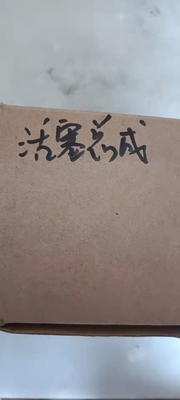 活塞总成